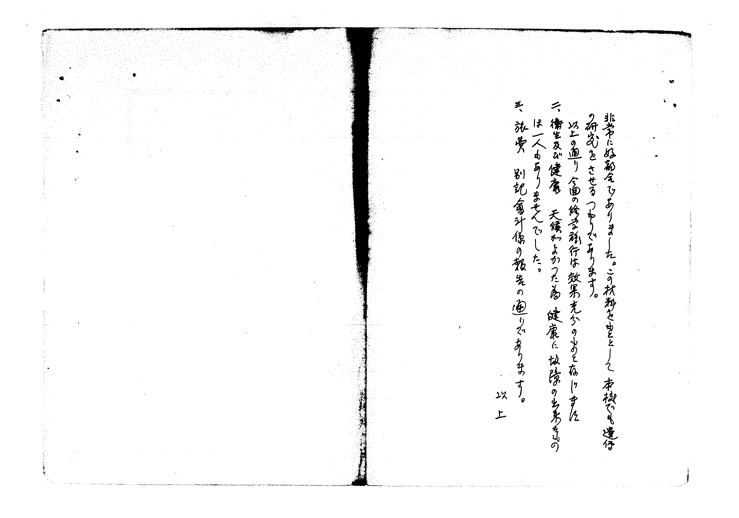 非常に好都合でありました。この材料をもととして 本校でも遺伝
の研究をさせるつもりであります。
以上の通り今回の修学旅行は効果充分のものと存じます
二、衛生及び健康 天候がよかつた為 健康に故障の出来たもの
は一人もありませんでした。
三、旅費 別記會計係の報告の通りであります。
以上